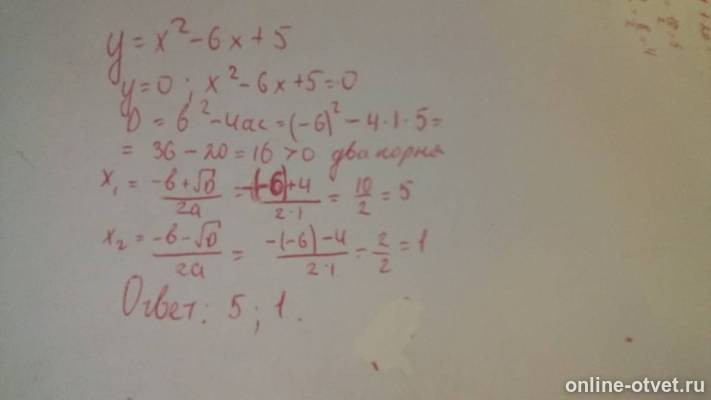 y = x² - 6x + 5
y = 0 ; x² - 6x + 5 = 0
D = b² - 4ac = (-6)² - 4·1·5 =
= 36 - 20 = 16 > 0 два корня
x₁ = (-b + √D)/2a = (-(-6) + 4)/(2·1) = 10/2 = 5
x₂ = (-b - √D)/2a = (-(-6) - 4)/(2·1) = 2/2 = 1
Ответ: 5 ; 1.
online-otvet.ru